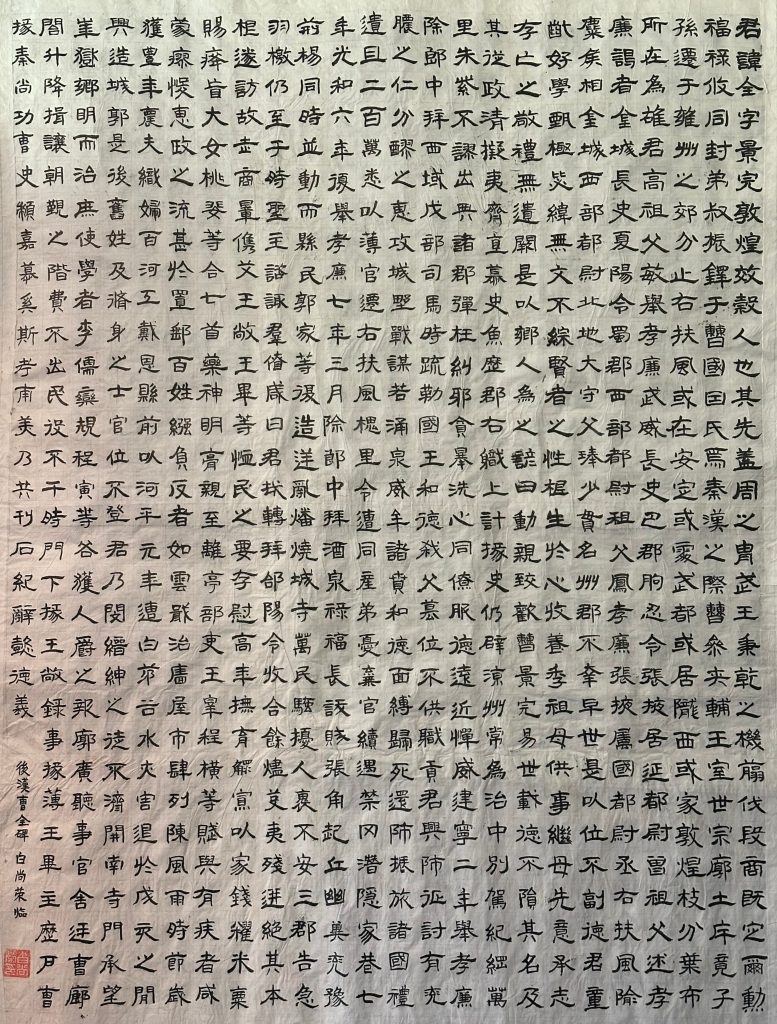 君諱全字景完敦煌效穀人也其先蓋周之冑武王秉乾之機翦伐殷商既定爾勳
福祿攸同封弟叔振鐸于曹國因氏焉秦漢之際曹參夾輔王室世宗廓土斥竟子
孫遷于雍州之郊分止右扶風或在安定或處武都或居隴西或家敦煌枝分葉布
所在為雄君高祖父敏舉孝廉武威長史巴郡朐忍令張掖居延都尉曾祖父述孝
廉謁者金城長史夏陽令蜀郡西部都尉祖父鳳孝廉張掖屬國都尉丞右扶風隃
麋侯相金城西部都尉北地大守父琫少貫名州郡不幸早世是以位不副德君童
齔好學甄極毖緯無文不綜賢者之性根生於心收養季祖母供事繼母先意承志
存亡之敬禮無遺闕是以鄉人為之諺曰動親致歡曹景完易世載德不隕其名及
其從政清擬夷齊直慕史魚歷郡右職上計掾史仍辟涼州常為治中別駕紀綱萬
里朱紫不謬出典諸郡彈枉糾邪貪暴洗心同僚服德遠近憚威建寧二年舉孝廉
除郎中拜西域戊部司馬時疏勒國王和德弒父篡位不供職貢君興師征討有兗
膿之仁分醪之惠攻城野戰謀若涌泉威牟諸賁和德面縛歸死還師振旅諸國禮
遺且二百萬悉以薄官遷右扶風槐里令遭同產弟憂棄官續遇禁冈潛隱家巷七
年光和六年復舉孝廉七年三月除郎中拜酒泉祿福長訞賊張角起兵幽冀兗豫
荊楊同時並動而縣民郭家等復造逆亂燔燒城寺萬民騷擾人裹不安三郡告急
羽檄仍至于時聖主諮諏群僚咸曰君哉轉拜郃陽令收合餘燼芟夷殘迸絕其本
根遂訪故老商量儁艾王敞王畢等恤民之要存慰高年撫育鰥寡以家錢糴米粟
賜癃盲大女桃婓等合七首藥神明膏親至離亭部吏王皋程橫等賦與有疾者咸
蒙瘳悛惠政之流甚於置郵百姓繈負反者如雲戢治廧屋市肆列陳風雨時節歲
獲豐年農夫織婦百河工戴恩縣前以河平元年遭白茅谷水災害退於戊亥之間
興造城郭是後舊姓及脩身之士官位不登君乃閔縉紳之徒不濟開南寺門承望
華嶽鄉明而治庶使學者李儒欒規程寅等各獲人爵之報廓廣聽事官舍廷曹廊
閤升降揖讓朝覲之階費不出民役不干時門下掾王敞錄事掾薄王畢主歷戶曹
掾秦尚功曹史顓嘉慕奚斯考甫美乃共刊石紀辭懿德義
後漢曹全碑 白尚榮臨